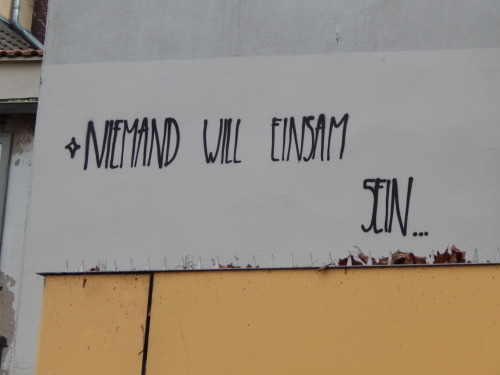 NIEMAND WILL EINSAM
SEIN...